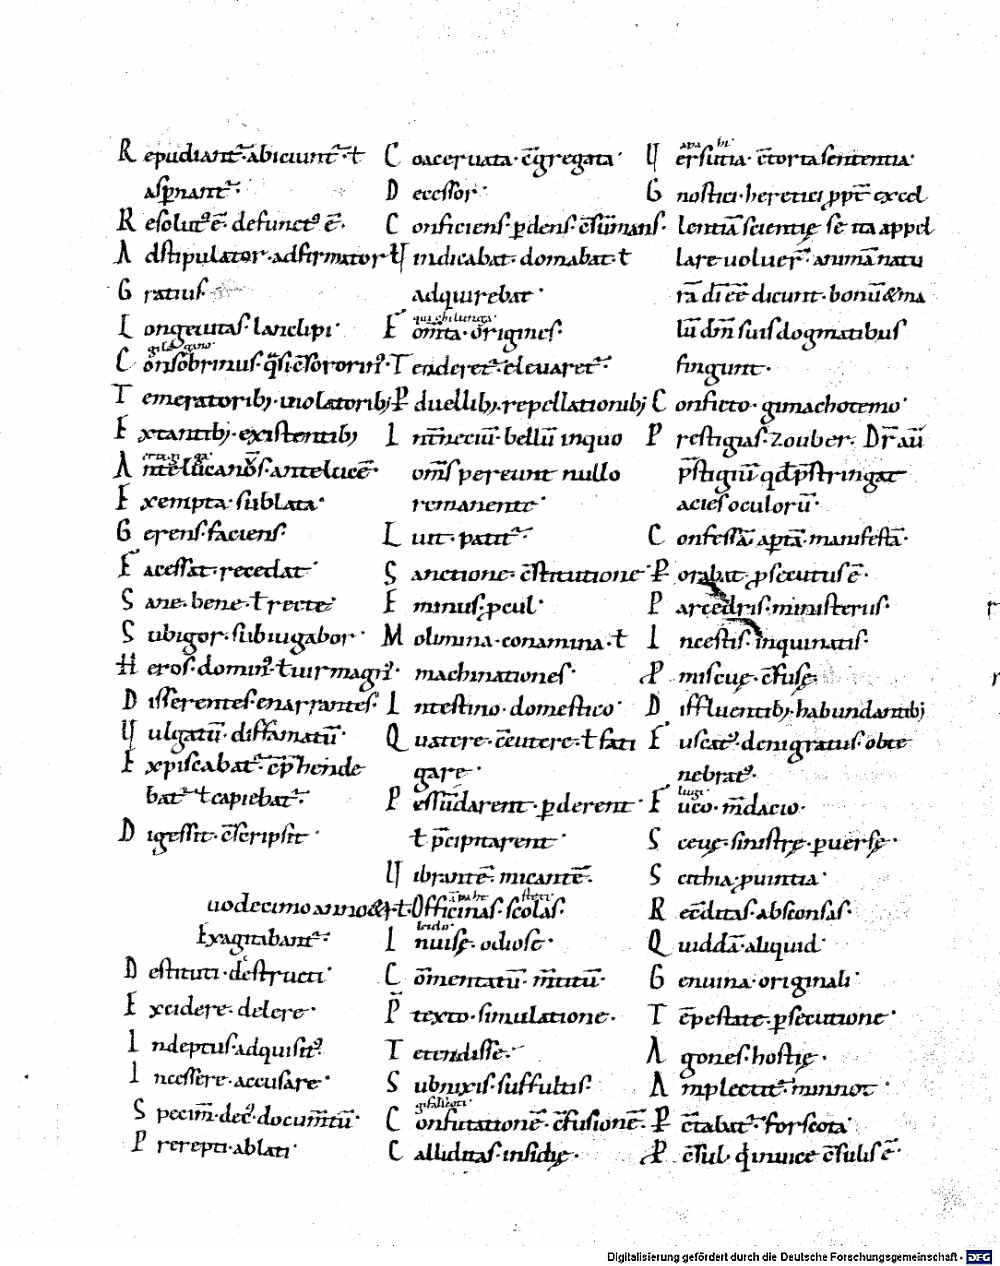 R epudiant᷑·abiciunt᷑·ł
asp̄nant᷑·
R esolutꝰ ē· defunctꝰ ē·
A dstipulator·adfirmator ł
G ratius·
L ongeuitas·lanclipi·
C onsobrinus·q̄si c̄sororinꝰ·
T emeratoribꝫ·uiolatoribꝫ
E xtantibꝫ·existentibꝫ
A ntelucanos·antelucē·
E xempta·sublata·
G erens·faciens·
F acessat·recedat·
S ane·bene·ł recte·
S ubigor·subiugabor·
H eros·dominꝰ·ł uir magnꝰ·
D isserentes·enarrantes·
U ulgatū·diffamatū·
E xpiscabat᷑·cp̄hende
bat᷑ ł capiebat᷑·
D igessit·c̄scripsit·
uodecimo anno &
Exagitabant᷑·
D estituti·destructi·
E xcidere·delere·
I ndeptus·adquisitꝰ
I ncessere·accusare·
S pecim̄·docum̄tū·
P rerepti·ablati·
C oaceruata·c̄gregata·
D ecessor·
C onficiens·ꝑdens·c̄sūmans·
U indicabat·domabat·ł
adquirebat·
E om̄ta·origines·
T enderet᷑·eleuaret᷑·
P duellibꝫ·repellationibꝫ
I nt̄neciū·bellū in quo
om̄s pereunt nullo
remanente·
L uit·patit᷑·
S anctione·c̄stitutione·
E minus·ꝓcul·
M olimina·conamina·ł
machinationes·
I ntestino·domestico·
Q uatere·c̄cutere·ł fati
gare·
P essūdarent·ꝑderent·
ł p̄cipitarent·
U ibrantē·micantē·
Officinas·scolas·
leido·
I nuisę·odiose·
C ōmentatū·m̄titū·
P̄ texto·simulatione·
T etendisse·
S ubnixis·suffultis·
C onfutationē·c̄fusionē·
C alliditas·insidię·
U ersutia·c̄torta sententia·
G nostici·heretici ꝓpt̄ excel
lentiā scientię se ita appel
lare uoluer̄·animā natu
rā dī eē dicunt·bonū & ma
lū dm̄ suis dogmatibus
fingunt·
C onficto·gimachotemo·
P restigias·zouber·Dr̄aū
p̄stigiū qd̄ p̄stringat
acies oculorū·
C onfessā·aꝑtā·manifestā·
P orabat·ꝓsecutus ē·
P arcedris·ministerus·
I ncestis·inquinatis·
P miscuę·c̄fuse·
D iffluentibꝫ·habundantibꝫ
F uscatꝰ·denigratus·obte
nebratꝰ·
lugi
F uco·m̄dacio·
S ceuę·sinistrę·ꝑuersę·
S cithia·ꝓuintia·
R ec̄ditas·absconsas·
Q uiddā·aliquid·
G enuina·originali·
T ēpestate·ꝑsecutione·
A gones·hostię·
A mplectit᷑·minnot·
P c̄tabat᷑·forscota·
P c̄sul·q̄ in uice c̄sulis ē·